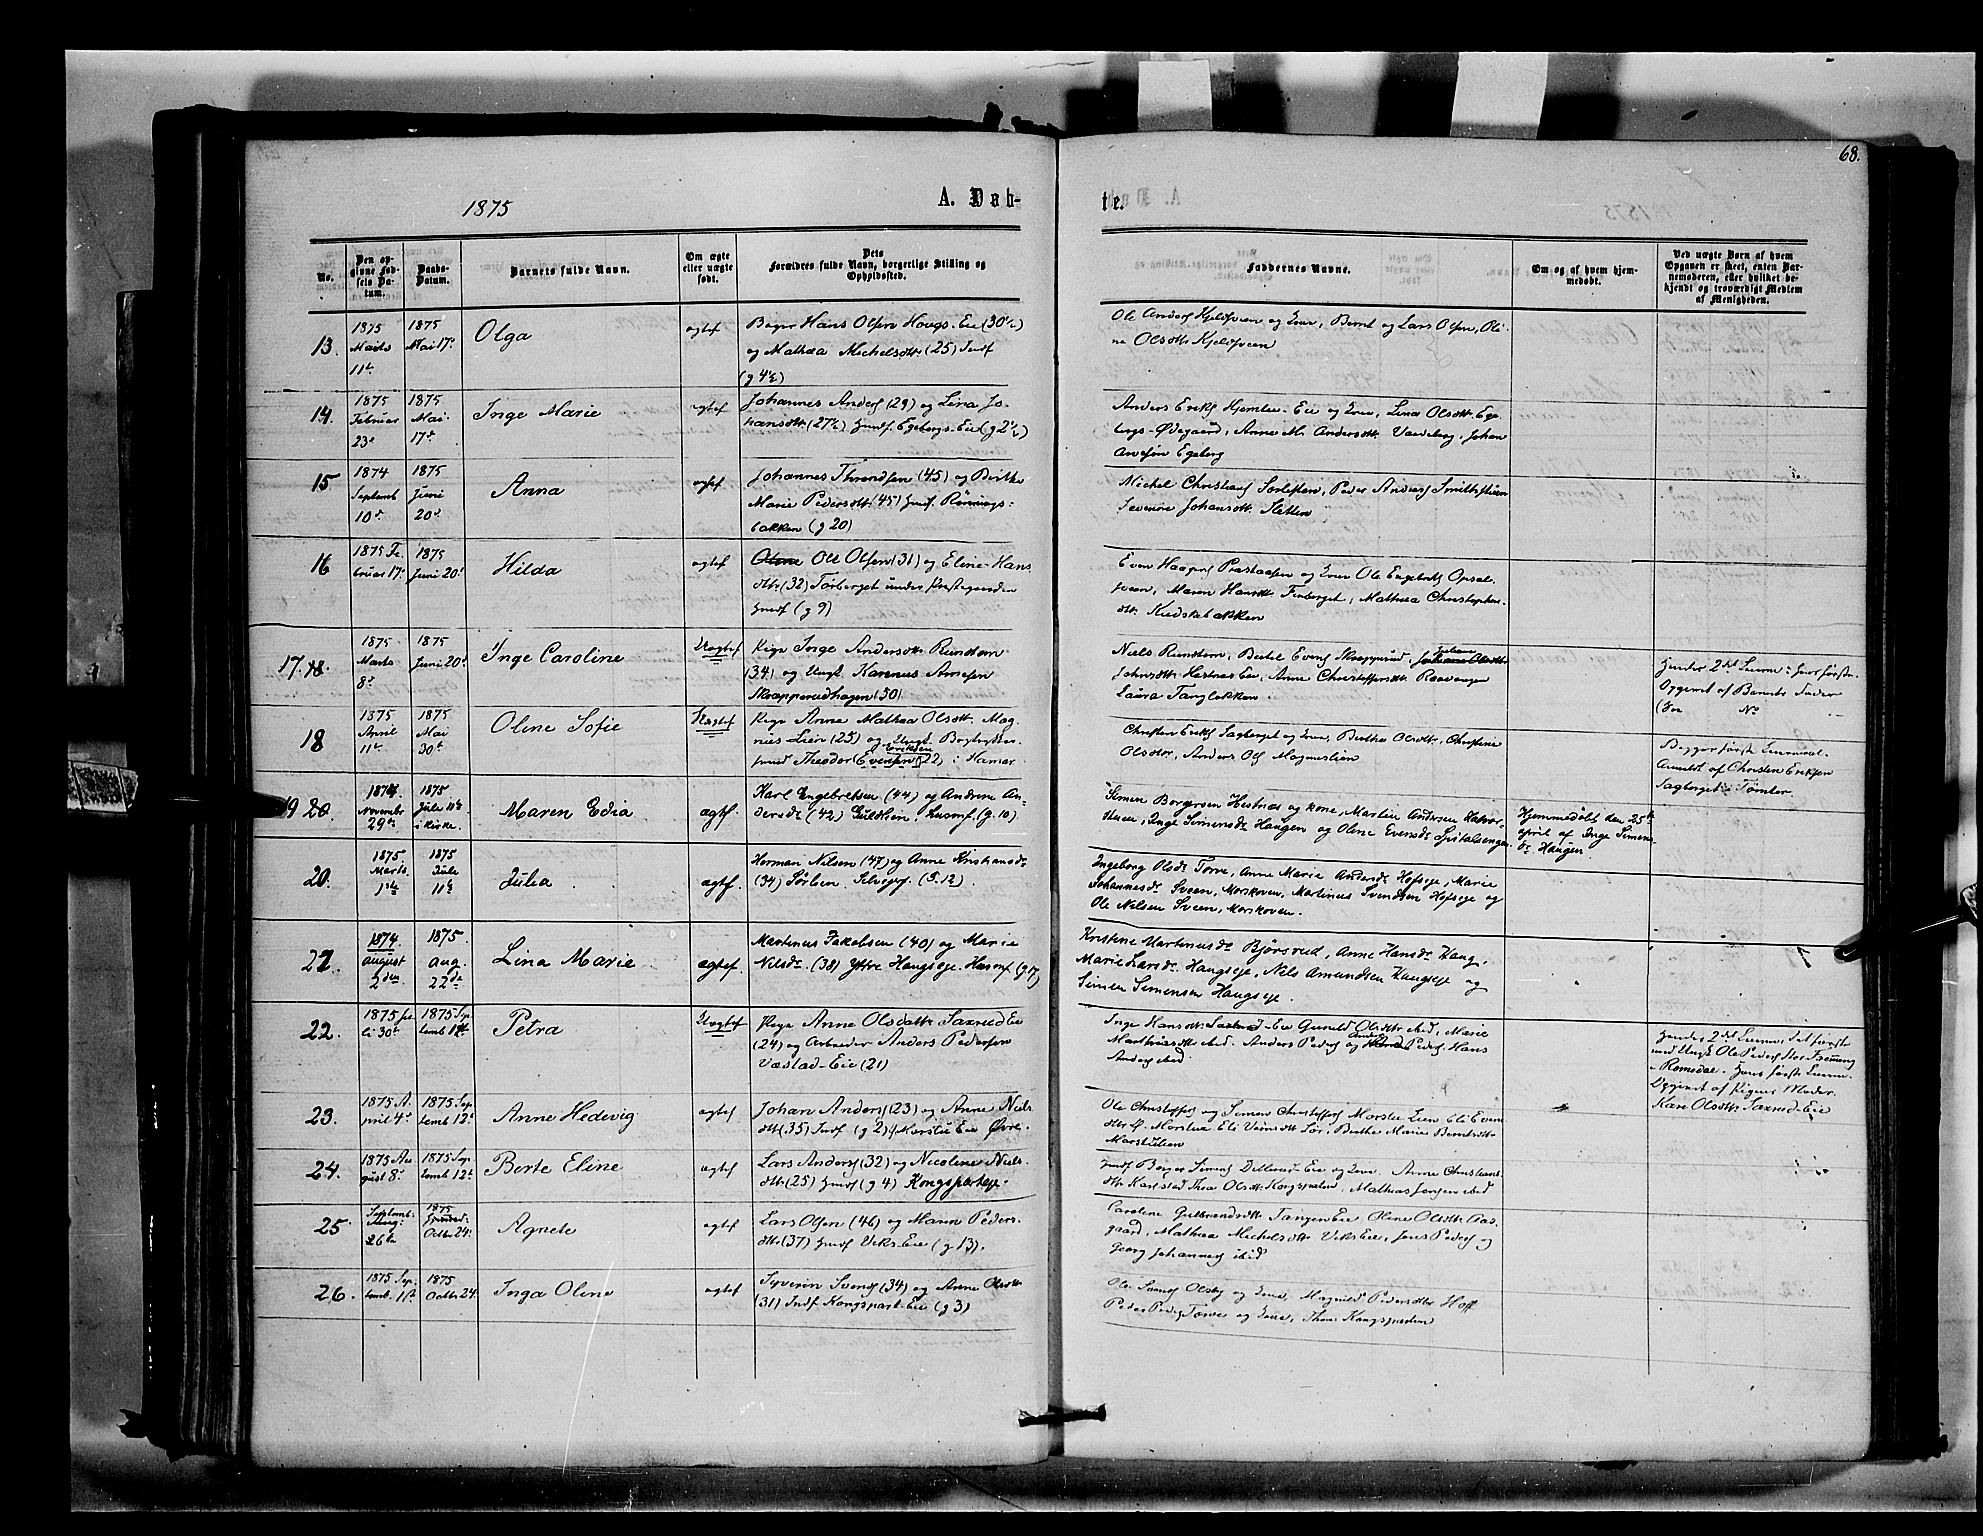 68.
1875
A. Dab-
te.
No.
Den opgivne Fødsels Datum.
Daabs-Datum.
Barnets fulde Navn.
Om ægte eller uægte født.
Dets Forældres fulde Navn, borgerlige Stilling og Opholdssted.
Faddernes Navne.
Om og af hvem hjemmedøbt.
Ved uægte Børn af hvem Opgaven er skeet, enten Barnemoderen, eller hvilket bekjendt og troværdigt Medlem af Menigheden.
13.
1875 Marts 11te
1875 Mai 17de
Olga
ægtef
Hans Olsen Haugs-Eie (30½)
og Mathea Michelsdtr. (25) Indf
(g 4½)
Ole Anders Kjeldsveen og Kone, Bernt og Lars Olsen, Oli-
ne Olsdtr. Kjeldsveen
14.
1875 Februar 23de
1875 Mai 17de
Inge Marie
ægtef
Johannes Anders (29) og Lina Jo-
hansdtr. (27½) Egebergs-Eie (g 2½)
Anders Eriks Hjemlie-Eie og Kone, Lina Olsdtr. Ege-
bergs-Ødegaard, Anne M. Andersdtr. , Johan
Egeberg
15
1874 Septemb 10de
1875 Juni 20de
Anna
ægtef
Johannes Throndsen (45) og Berthe
Marie Pedersdtr. (45) Rönnings-
bakken (g 20)
Michel Christians , Peder Anders Smithstuen
Severine Johansdtr. Sletten
16
1875 Februar 17de
1875 Juni 20de
Hilda
ægtef
Ole Olsen (31) og Eline Hans
dtr. (32) Torberget under Præstegaarden
(g 9)
Even Haagens og Kone Ole Engebrets Opsal-
sveen, Maren Hansdtr. , Mathea Christophers-
dtr. Kudskebakken
17. 18.
1875 Marts 8de
1875 Juni 20de
Inge Caroline
Uægtef
Pige Inge Andersdtr. Rundtom
(34) og Ungk. Karenus Arnesen
Skrapperudhagen (30)
Niels Rundtom, Bertel Evens Skrapperud,
Johnsdtr. Hestnes Eie, Anne Christoffersdtr.
Laura Tangbakken
Hendes 2det Leierm: hans første.
Opgivet af Barnets Fader
No
18
1875 April 11te
1875 Mai 30te
Oline Sofie
Uægtef
Pige Anne Mathea Olsdtr. Mag-
nies-Lien (25) og Ungk. Bogtrykker-
svend Theodor Evensen Eriksen (22) i Hamar
Christen Eriks Sagberget og Kone, Berthe Olsdtr., Christine
Olsdtr., Anders Ols Magneslien
Begges første Leiermaal.
Anmeldt af Christen Eriksen
Sagberget i Tomter.
19 20.
1874 Novembr 29de
1875 Juli 11te i Kirke.
Maren Edia
ægtf.
Karl Engebretsen (44) og Andrine An-
dersdr (42) Guldlien, Husmf. (g. 10)
Simen Borgersen Hestnæs og kone, Martin Andersen Halvor-
stuen, Inge Simensdr Haugen og Oline Evensdr Spitalsengen.
Hjemmedøbt den 25de
april af Inge Simens-
dr Haugen.
20.
1875. Marts 1ste
1875 Juli 11te
Julia
ægtef.
Herman Nilsen (47) og Anne Kristiansdr
(34) Sørlien, Selveier. (g. 12).
Ingeborg Olsdr Torve, Anne Marie Andersdr Hofseje, Marie
Johannesdr Sveen, Morskoven, Martinus Svendsen Hofseje og
Ole Nilsen Sveen, Morskoven.
21.
1874. august 2den
1875. aug. 22de
Lina Marie
ægtef.
Martinus Jakobsen (40) og Marie
Nilsdr. (38) Yttre Haugseje. Husmf. (g. 17)
Kristine Martinusdr Björsrud, Anne Hansdr Haug,
Marie Larsdr. Haugseje, Nils Amundsen Haugseje og
Simen Simensen Haugseje.
22.
1875 Juli 30te
1875 Septemb 12te
Petra
Uægtef
Pige Anne Olsdatter Saxrud Eie
(24) og Arbeider Anders Pedersen
Væstad-Eie (21)
Inge Hansdtr. Saxrud-Eie Gunild Olsdtr. ibid, Marie
Mathiasdtr ibid. Anders Peders og Peders, Hans
Anders ibid
Hendes 2det Leierm. Det første
med Ungk. Ole Peders
Romsdal. Hans første Leierm.
Opgivet af Pigens Moder
Kari Olsdtr. Saxrud-Eie
23.
1875 April 4de
1875 Septemb 12te
Anne Hedevig
ægtef
Johan Anders (23) og Anne Niels
dtr. (35) Indf (g 2) Morstu Eie Øvre.
Ole Christoffers og Simen Christoffers Morstu Lien Eli Evens
dtr. Ø. Morstue Eli dtr. Sør., Berthe Marie Berntsdtr.
Morstulien
24.
1875 August 8de
1875 Septemb 12te
Berte Eline
ægtef
Lars Anders (32) og Nicoline Niels-
dtr. (25) (g 4) Kongsparteje.
Borger Simens Dellerud-Eie og Kone, Anne Christians
dtr. Karlstad Thea Olsdtr. Kongsparten, Mathias Jensen ibid
25
Septemb. 26de
1875 Octbr 24.
Agnete
ægtef
Lars Olsen (46) og Maren Peders-
dtr. (37) Veks-Eie (g 13).
Caroline Gulbrandsdtr. Tangen Eie, Oline Olsdtr. Aas-
gaard, Mathea Michelsdtr. Veks Eie, Jens Peders og
Georg Johannes ibid
26.
1875 Septemb. 11te
1875 Octbr 24.
Inga Oline
ægtef
Syverin Svends (34) og Anne Olsdtr
(31) Indf. Kongspart-Eie (g 3)
Ole Svends Olsby og Kone, Magnild Pedersdtr. Hoff
Peder Peders Torve og Kone, Thea Kongsparten